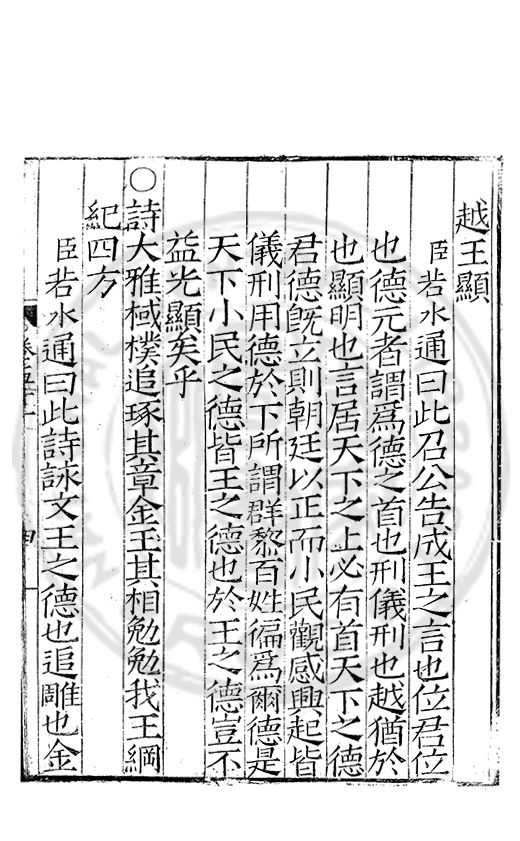 越王顯
臣若水通曰此召公告成王之言也位君位
也德元者謂爲德之首也刑儀刑也越猶於
也顯明也言居天下之上必有首天下之德
君德旣立則朝廷以正而小民觀感興起皆
儀刑用德於下所謂群黎百姓徧爲爾德是
天下小民之德皆王之德也於王之德豈不
益光顯矣乎
○詩大雅棫樸追琢其章金玉其相勉勉我王綱
紀四方
臣若水通曰此詩詠文王之德也追雕也金